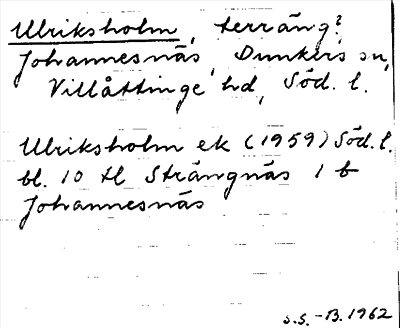 Ulriksholm, terräng?
Johannesnäs, Dunkers sn,
Villåttinge hd, Söd. l.
Ulriksholm ek (1959) Söd. l.
bl. 10 tl Strängnäs 1 b
Johannesnäs
S.S. -B. 1962